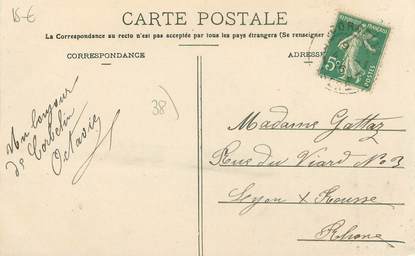 15-€
CARTE POSTALE
La Correspondance au recto n'est pas acceptée par tous les pays étrangers (Se renseigner
CORRESPONDANCE
ADRESSE
5c
POSTES
38)
Un bonjour
de Corbelin
Octavie
Madame Gattaz
Rue du Viard No 3
Lyon X Rousse
Rhone